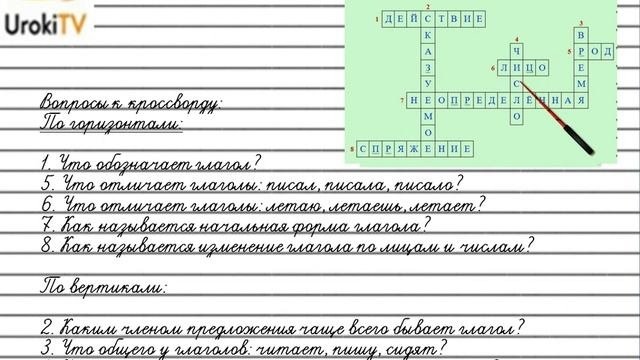 UrokiTV
2
1 ДЕЙСТВИЕ
3
ВРЕМЯ
4
ЧИСЛО
5 РОД
СКАЗУЕМОЕ
6 ЛИЦО
7 НЕОПРЕДЕЛЁННАЯ
8 СПРЯЖЕНИЕ
Вопросы к кроссворду:
По горизонтали:
1. Что обозначает глагол?
5. Что отличает глаголы: писал, писала, писало?
6. Что отличает глаголы: летаю, летаешь, летает?
7. Как называется начальная форма глагола?
8. Как называется изменение глагола по лицам и числам?
По вертикали:
2. Каким членом предложения чаще всего бывает глагол?
3. Что общего у глаголов: читает, пишу, сидят?